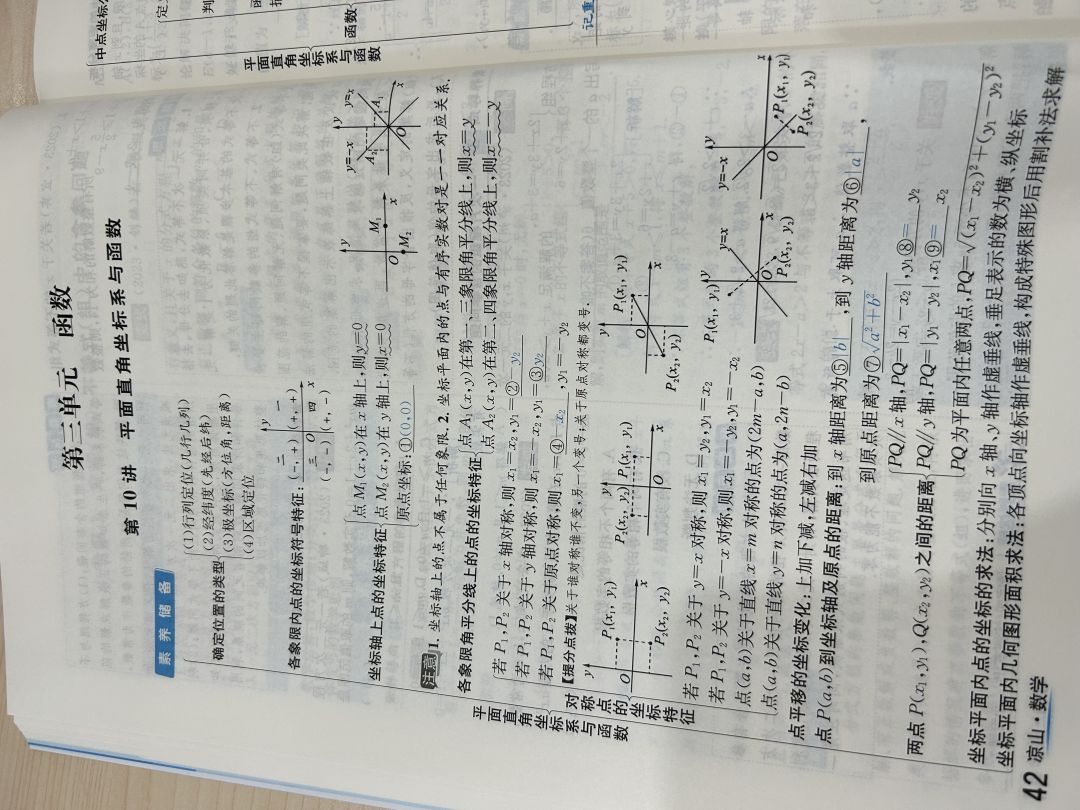 第三单元 函数
第10讲 平面直角坐标系与函数
素养储备
平面直角坐标系与函数
确定位置的类型
(1)行列定位(几行几列)
(2)经纬度(先经后纬)
(3)极坐标(方位角,距离)
(4)区域定位
各象限内点的坐标符号特征:
y
二 一
(-,+) (+,+)
O x
三 四
(-,-) (+,-)
坐标轴上点的坐标特征
点 M₁(x,y)在 x 轴上,则y=0
点 M₂(x,y)在 y 轴上,则x=0
原点坐标:①(0,0)
y M₁ O x M₂
注意 1. 坐标轴上的点不属于任何象限. 2. 坐标平面内的点与有序实数对是一一对应关系.
各象限角平分线上的点的坐标特征
点 A₁(x,y)在第一、三象限角平分线上,则x=y
点 A₂(x,y)在第二、四象限角平分线上,则x=-y
y=-x y y=x A₂ A₁ O x
对称点的坐标特征
若 P₁,P₂ 关于 x 轴对称,则 x₁=x₂,y₁=②-y₂
若 P₁,P₂ 关于 y 轴对称,则 x₁=-x₂,y₁=③y₂
若 P₁,P₂ 关于原点对称,则 x₁=④-x₂,y₁=-y₂
【提分点拨】关于谁对称谁不变,另一个变号;关于原点对称都变号.
y P₁(x₁, y₁) O x P₂(x₂, y₂)
y P₂(x₂, y₂) P₁(x₁, y₁) O x
y P₁(x₁, y₁) O x P₂(x₂, y₂)
若 P₁,P₂ 关于 y=x 对称,则 x₁=y₂,y₁=x₂
若 P₁,P₂ 关于 y=-x 对称,则 x₁=-y₂,y₁=-x₂
点(a,b)关于直线 x=m 对称的点为(2m-a,b)
点(a,b)关于直线 y=n 对称的点为(a,2n-b)
P₁(x₁, y₁) y y=x O x P₂(x₂, y₂)
y=-x y O x P₁(x₁, y₁) P₂(x₂, y₂)
点平移的坐标变化:上加下减,左减右加
点 P(a,b)到坐标轴及原点的距离:到 x 轴距离为⑤|b|,到 y 轴距离为⑥|a|,
到原点距离为⑦√a²+b²
两点 P(x₁,y₁),Q(x₂,y₂)之间的距离
PQ∥x 轴,PQ=|x₁-x₂|,y₁⑧=y₂
PQ∥y 轴,PQ=|y₁-y₂|,x₁⑨=x₂
PQ 为平面内任意两点,PQ=√(x₁-x₂)²+(y₁-y₂)²
坐标平面内点的坐标的求法:分别向 x 轴、y 轴作虚垂线,垂足表示的数为横、纵坐标
坐标平面内几何图形面积求法:各顶点向坐标轴作虚垂线,构成特殊图形后用割补法求解
42 凉山·数学
中点坐标公
平面直角坐标系与函数
函数
记重